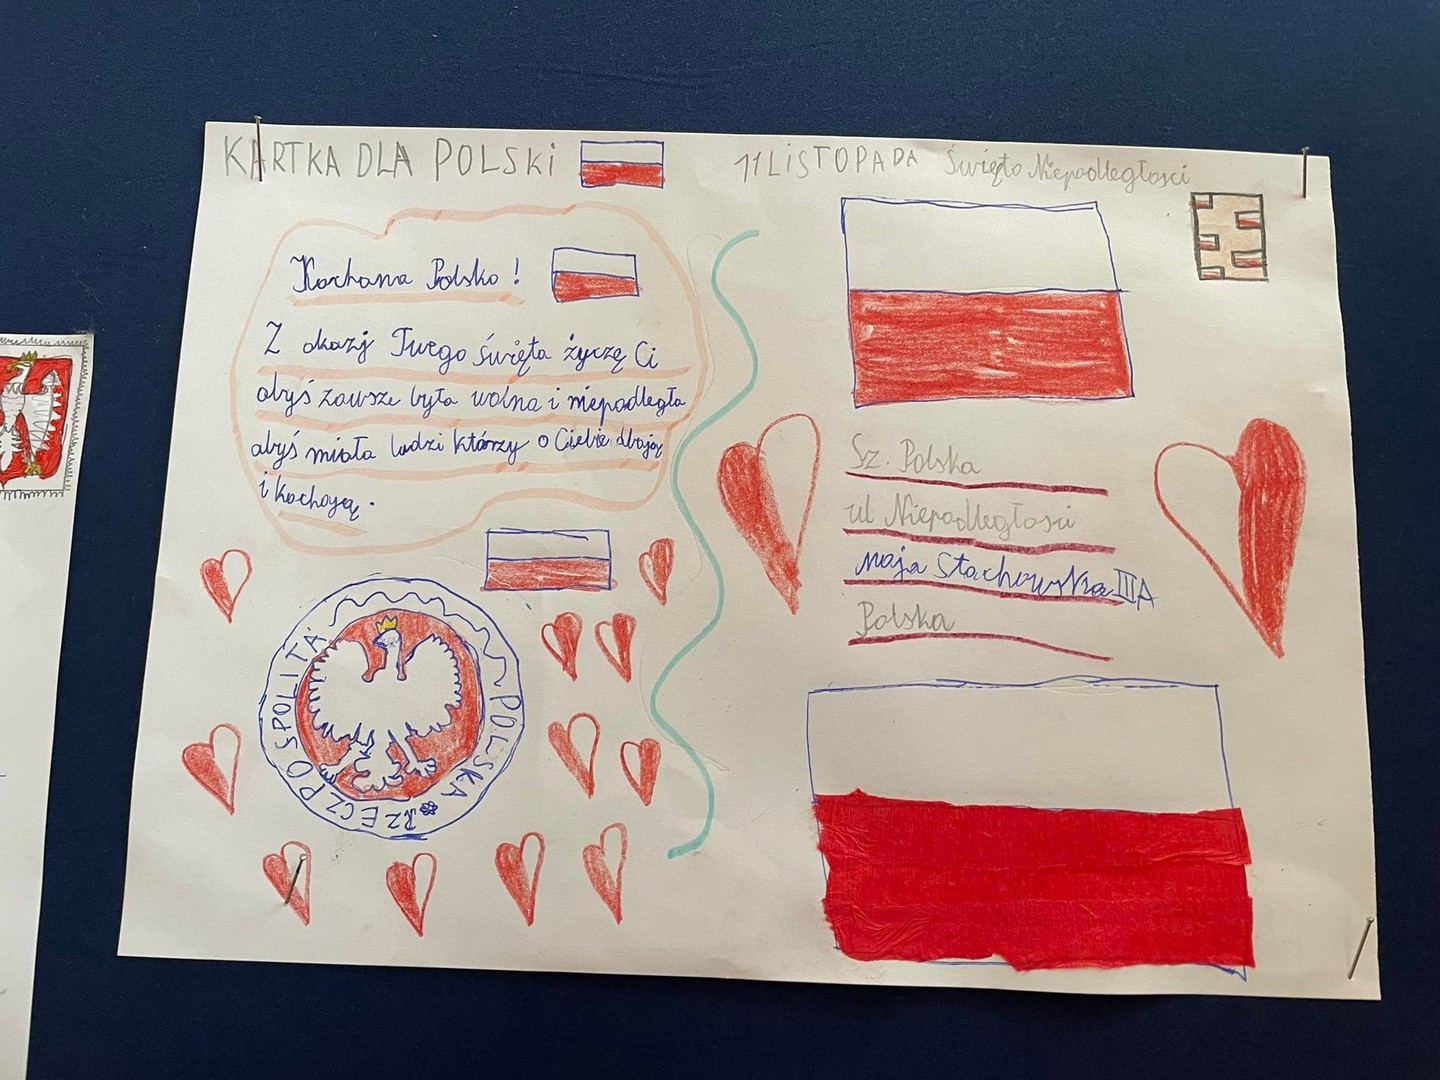 KARTKA DLA POLSKi
Kochana Polsko!
Z okazj Twego święta życzę Ci
abyś zawsze była wolna i niepodległa
abyś miała ludzi którzy o Ciebie dbają
i kochają.
RZECZPOSPOLITA POLSKA
11 LiSTOPADA Święto Niepodległości
Sz. Polska
ul Niepodległości
Maja Stachowska III A
Polska